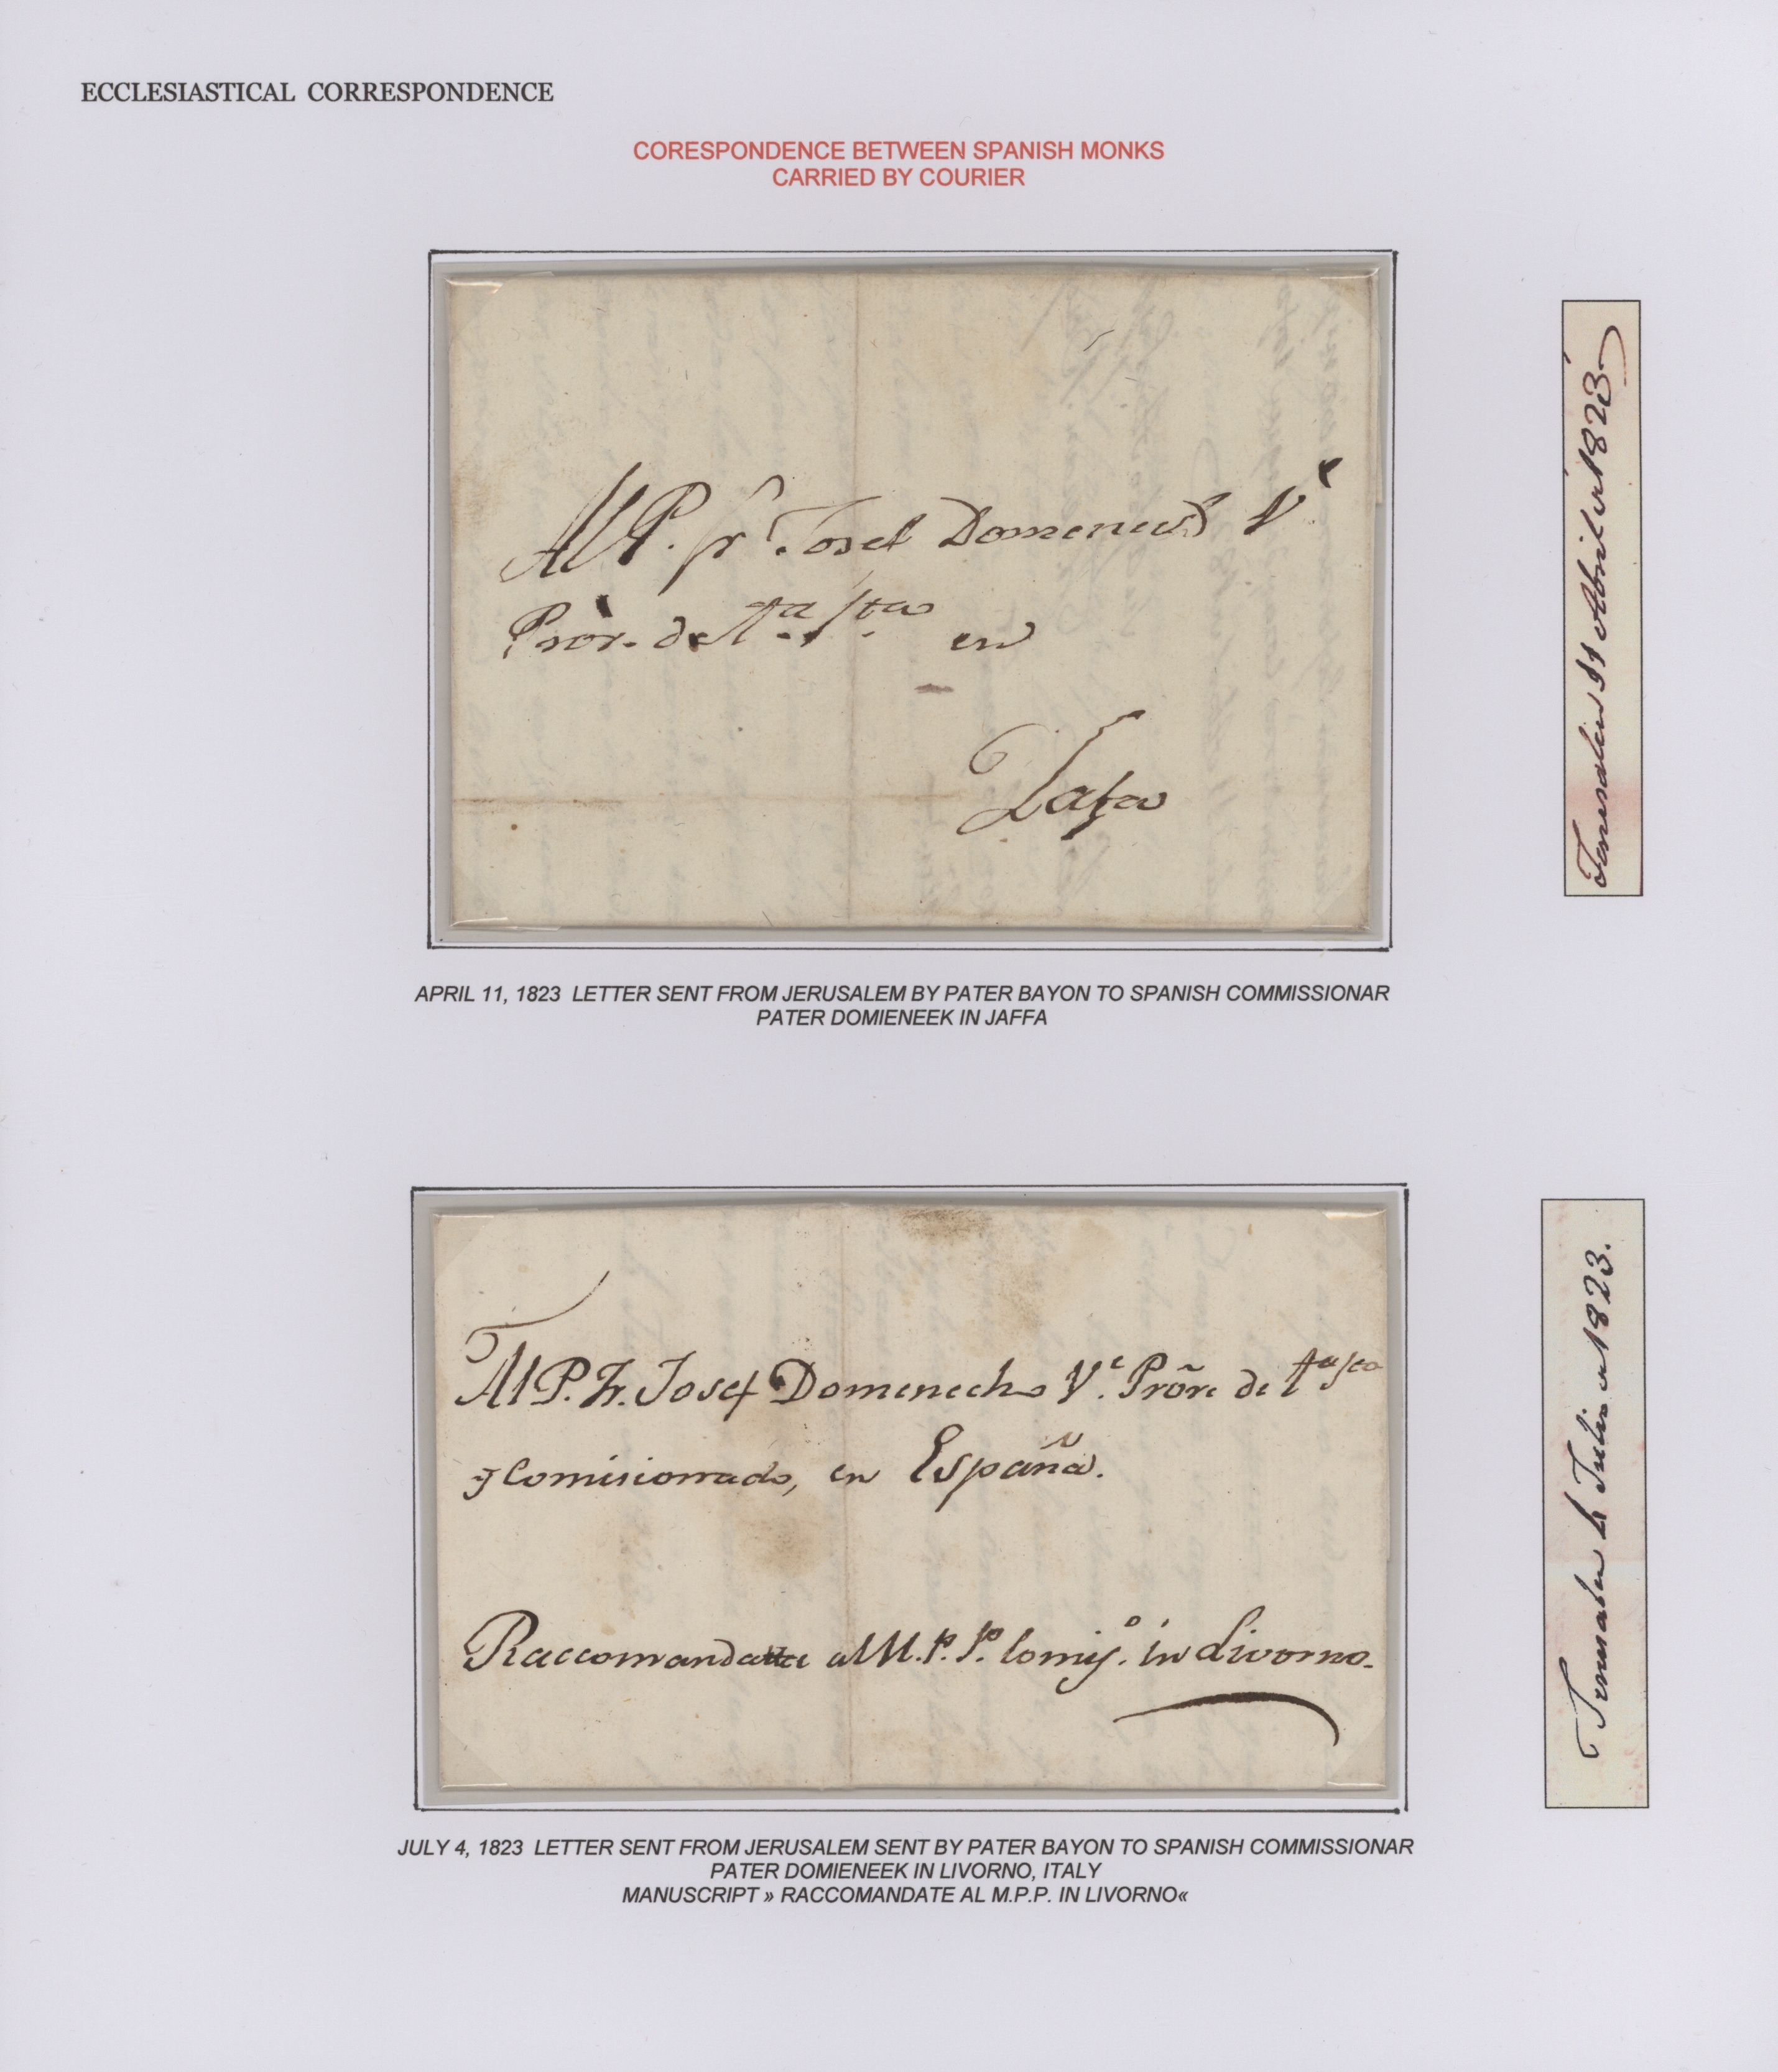 ECCLESIASTICAL CORRESPONDENCE
CORESPONDENCE BETWEEN SPANISH MONKS
CARRIED BY COURIER
Al P. fr Josef Domenech V.e
Prōr. de Ta Sta en
Jafa
Jerusalen 11 Abril de 1823
APRIL 11, 1823 LETTER SENT FROM JERUSALEM BY PATER BAYON TO SPANISH COMMISSIONAR
PATER DOMIENEEK IN JAFFA
Al P. Fr. Josef Domenech V.e Prōre de Ta Sta
y Comisionado, en España.
Raccomandata al M. P. P. Comis.o in Livorno.
Jerusalen 4 Julio de 1823.
JULY 4, 1823 LETTER SENT FROM JERUSALEM SENT BY PATER BAYON TO SPANISH COMMISSIONAR
PATER DOMIENEEK IN LIVORNO, ITALY
MANUSCRIPT » RACCOMANDATE AL M.P.P. IN LIVORNO«